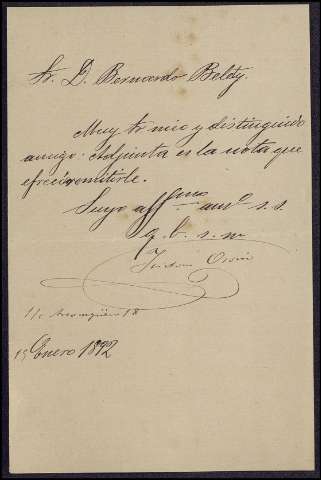 Sr. D. Bernardo Belety.
Muy Sr mio y distinguido
amigo: Adjunta es la nota que
ofrecí remitirle.
Suyo affmo amo s. s.
q. b. s. m
15 Enero 1892